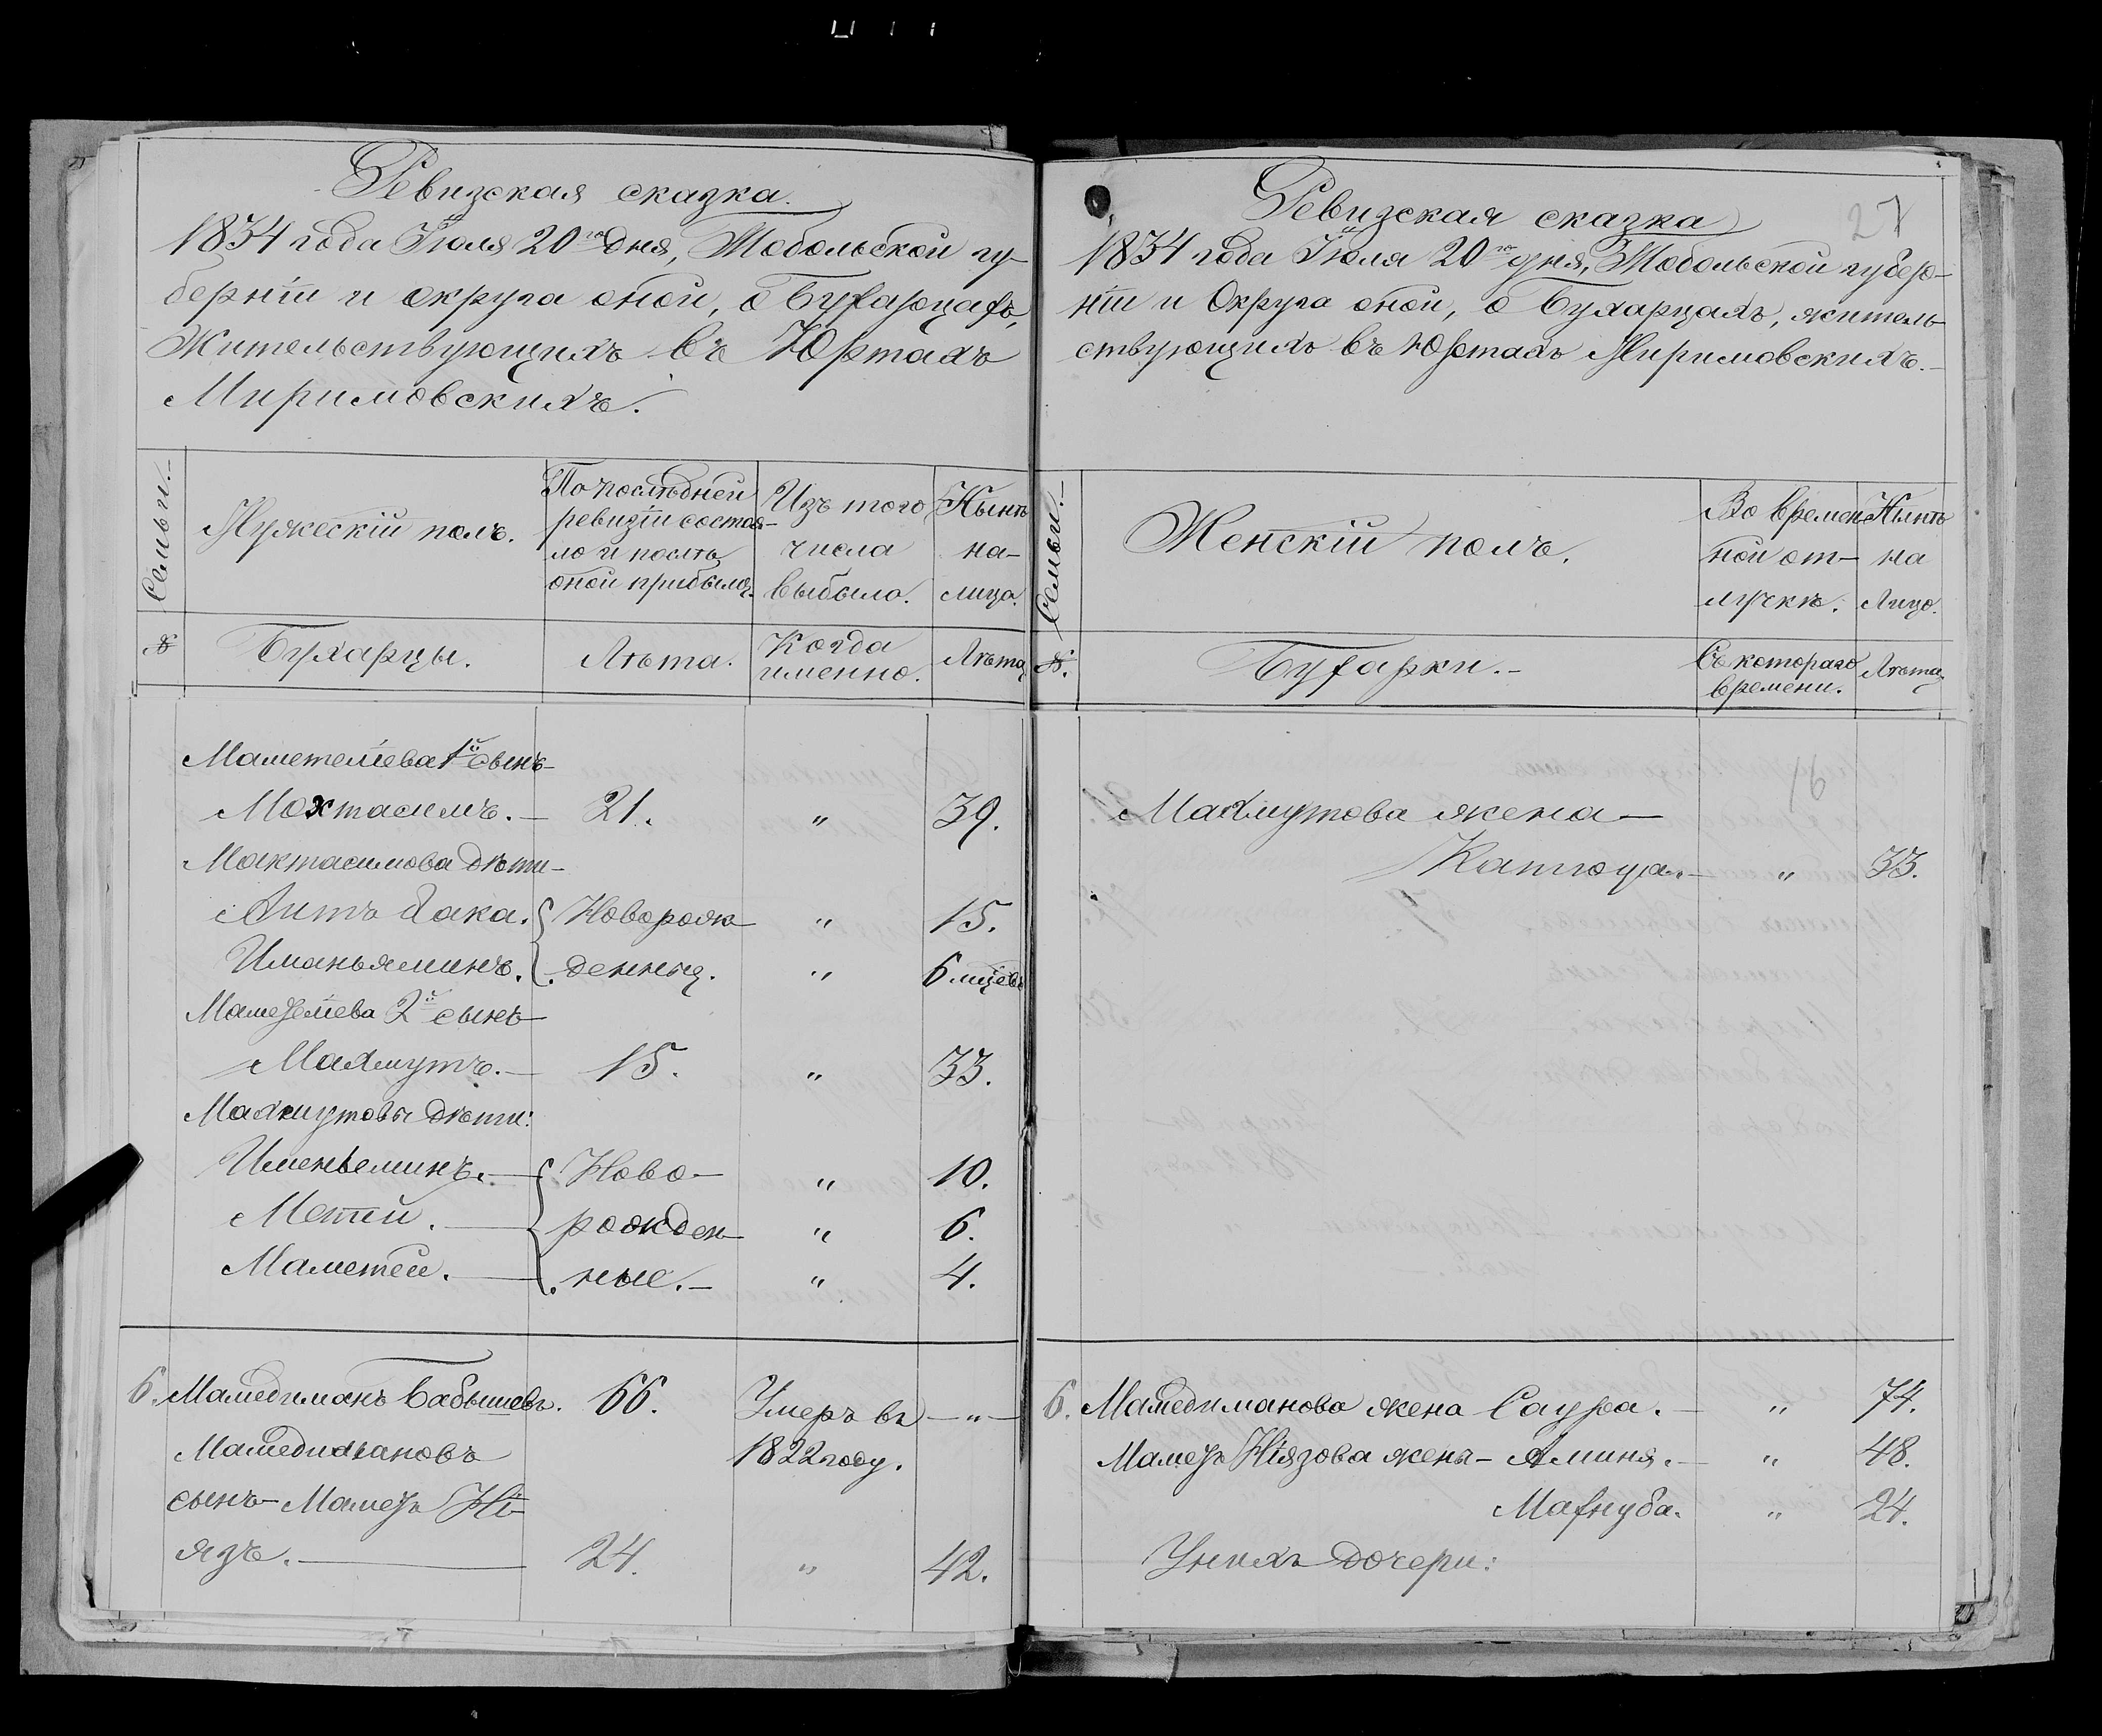 Ревизская сказка.
1834 года Іюля 20го дня, Тобольской гу-
берніи и округа оной, о Бухарцахъ,
Жительствующихъ въ Юртахъ
Миримовскихъ.
Семьи.
Мужескій полъ.
По послѣдней
ревизіи состоя-
ло и послѣ
оной прибыло.
Изъ того
числа
выбыло.
Нынѣ
на-
лицо.
№
Бухарцы.
Лѣта.
Когда
именно.
Лѣта
Маметеліева 1й сынъ
Мохтасимъ. — 21. „ 39.
Мохтасимова дѣти —
Аитъ Бака. Новорож- „ 15.
Иманьяминъ. денныя. „ 6 мцевъ
Маметеліева 2й сынъ —
Махмутъ. — 15. „ 33.
Махмутовы дѣти:
Именьеминъ. — Ново- „ 10.
— рожден- „ 6.
Маметей. — ные. — „ 4.
6. Мамедиманъ Бабышевъ. 66. Умеръ въ — „ —
Мамедимановъ 1822 году.
сынъ — Маметъ Ні-
язъ. — 24. „ 42.
27
Ревизская сказка
1834 года Іюля 20го дня, Тобольской губер-
ніи и Округа оной, о Бухарцахъ, житель-
ствующихъ въ Юртахъ Миримовскихъ. —
Семьи. —
Женскій полъ.
Во времен-
ной от-
лучкѣ.
Нынѣ
на
Лицо.
№.
Бухарки. —
Съ котораго
времени.
Лѣта.
16
Махмутова жена —
Катюца. — „ 33.
6. Мамедиманова жена Саура. — „ 74.
Маметъ Ніязова жены — Аминя. — „ 48.
Махнуба. „ 24.
У нихъ дочери: